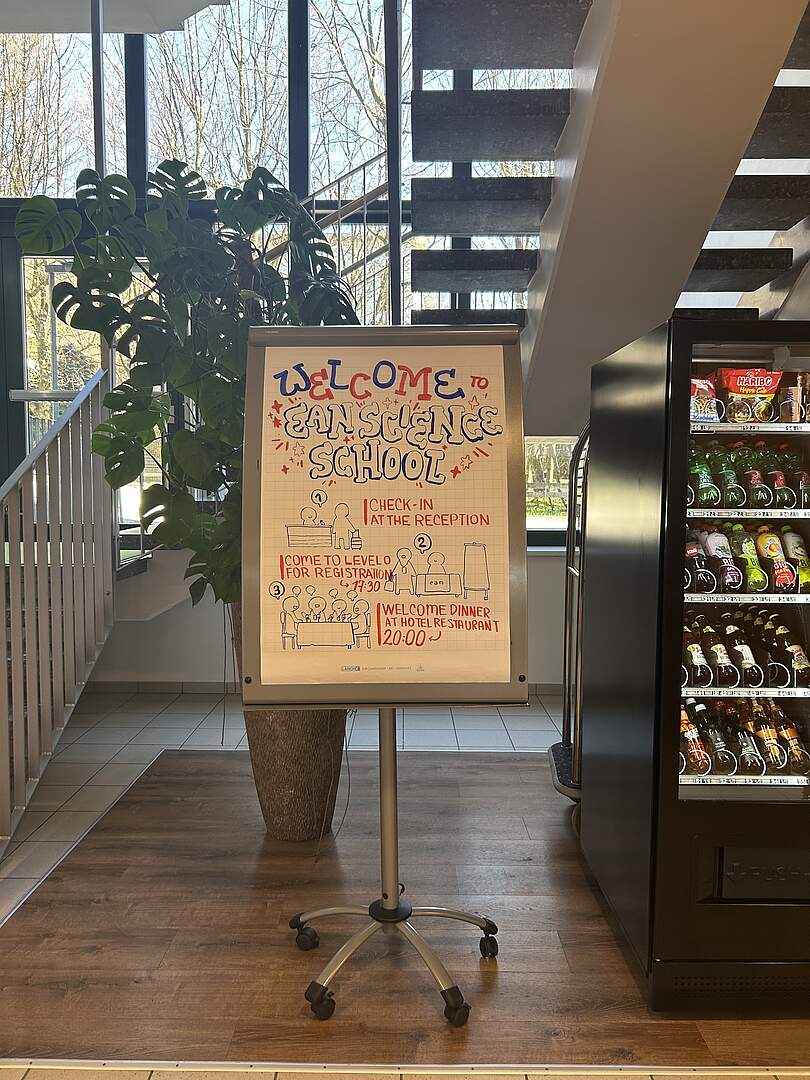 WELCOME TO
EAN SCIENCE
SCHOOL
1
CHECK-IN
AT THE RECEPTION
COME TO LEVEL 0
FOR REGISTRATION
↳ 17:30
2
ean
3
WELCOME DINNER
AT HOTEL RESTAURANT
20:00
HARIBO
Happy Cola
PUSH